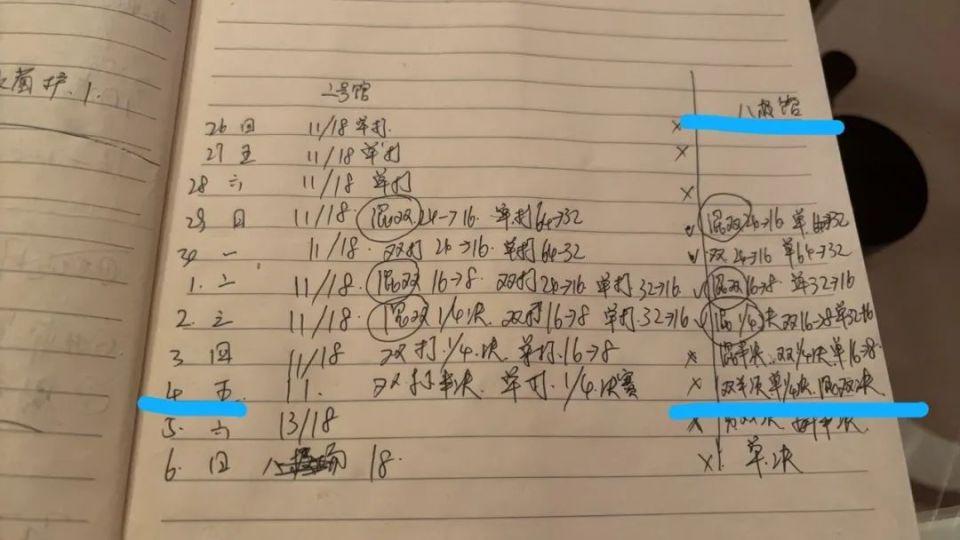 二号馆
八极馆
26 四 11/18 单打. ×
27 五 11/18 单打 ×
28 六 11/18 单打 ×
29 日 11/18. 混双 24→16. 单打 64→32 ✓ 混双 24→16 单 32
30 一 11/18. 双打 24→16. 单打 64→32 ✓ 双 24→16 单 64→32
1. 二 11/18. 混双 16→8. 双打 24→16 单打 32→16 ✓ 混双 16→8. 单 32→16
2. 三 11/18. 混双 1/4 决. 双打 16→8 单打 32→16 ✓ 混 1/4 决 双 16→8 单 32→16
3. 四 11/18 双打. 1/4. 决. 单打. 16→8 × 混半决. 双 1/4 决. 单 16→8
4. 五 11. 双打半决. 单打. 1/4. 决赛 × 双半决 单 1/4 决. 混双决
5. 六 13/18 ×
6. 日 18. × 单. 决